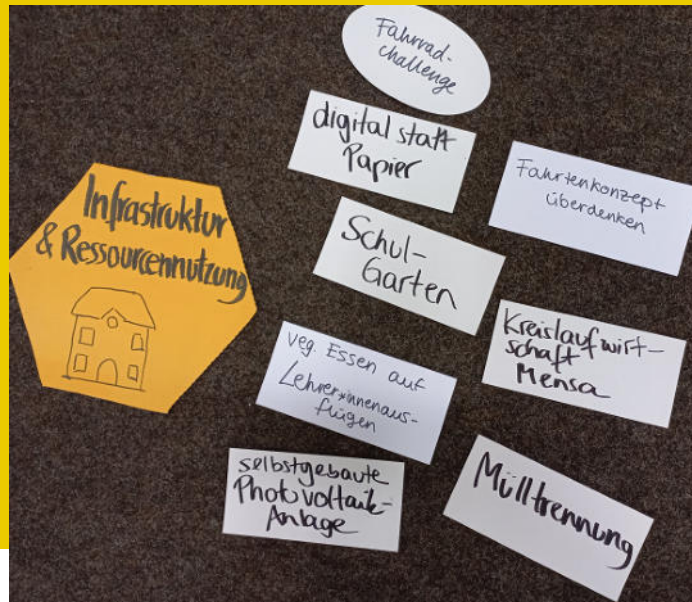 Infrastruktur
& Ressourcennutzung
Fahrrad-
challenge
digital statt
Papier
Fahrtenkonzept
überdenken
Schul-
Garten
Kreislaufwirt-
schaft
Mensa
veg. Essen auf
Lehrer*innenaus-
flügen
selbstgebaute
Photovoltaik-
Anlage
Mülltrennung